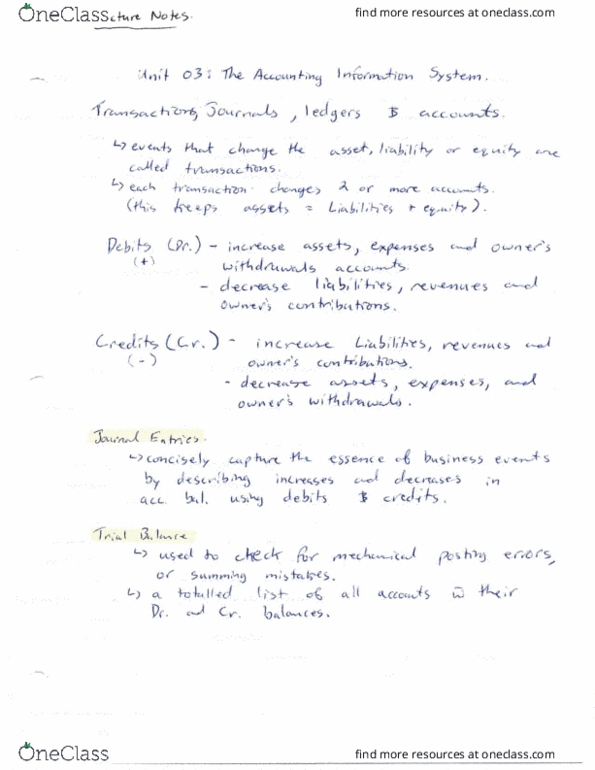 OneClass
find more resources at oneclass.com
cture Notes.
Unit 03: The Accounting Information System.
Transactions, Journals, ledgers & accounts.
↳ events that change the asset, liability or equity are
called transactions.
↳ each transaction changes 2 or more accounts.
(this keeps assets = Liabilities + equity).
Debits (Dr.) - increase assets, expenses and owner's
(+) withdrawals accounts.
- decrease liabilities, revenues and
owner's contributions.
Credits (Cr.) - increase Liabilities, revenues and
(-) owner's contributions.
- decrease assets, expenses, and
owner's withdrawals.
Journal Entries.
↳ concisely capture the essence of business events
by describing increases and decreases in
acc. bal. using debits & credits.
Trial Balance
↳ used to check for mechanical posting errors,
or summing mistakes.
↳ a totalled list of all accounts w their
Dr. and Cr. balances.
OneClass
find more resources at oneclass.com